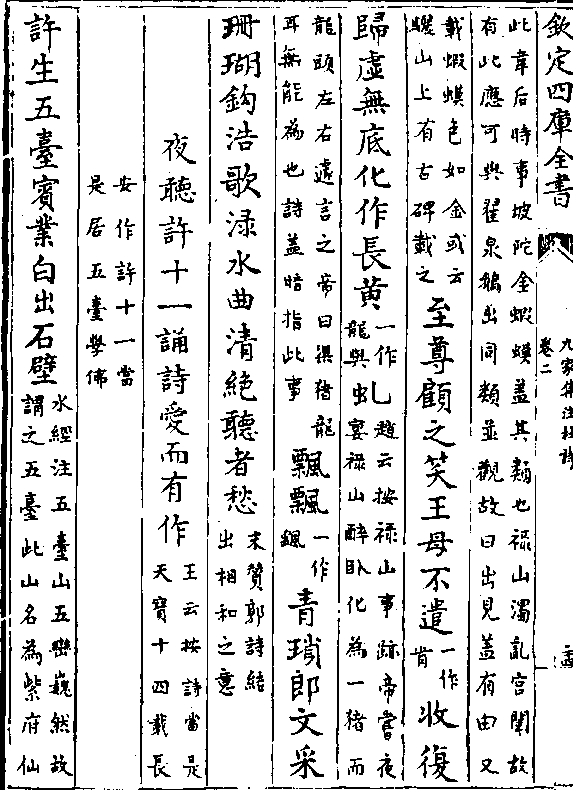 欽定四庫全書
九家集注杜詩
卷二
此韋后時事坡陀金蝦蟆盖其類也禄山濁亂宫闈故
有此應可與翟泉鵝出同類並觀故曰出見盖有由又
載蝦蟆色如金或云
驪山上有古碑載之
至尊顧之笑王母不遣一作肯收復
歸虚無底化作長黄一作龍與虬
趙云按禄山事跡帝嘗夜
宴禄山醉卧化為一猪而
龍頭左右遽言之帝曰渠猪龍
耳無能為也詩盖暗指此事
飄飄一作颻青瑣郎文采
珊瑚鈎浩歌渌水曲清絶聽者愁
末贊郭詩結
出相和之意
夜聽許十一誦詩愛而有作
王云按詩當是
天寳十四載長
安作許十一當
是居五臺學佛
許生五臺賓業白出石壁
水經注五臺山五巒巍然故
謂之五臺此山名為紫府仙